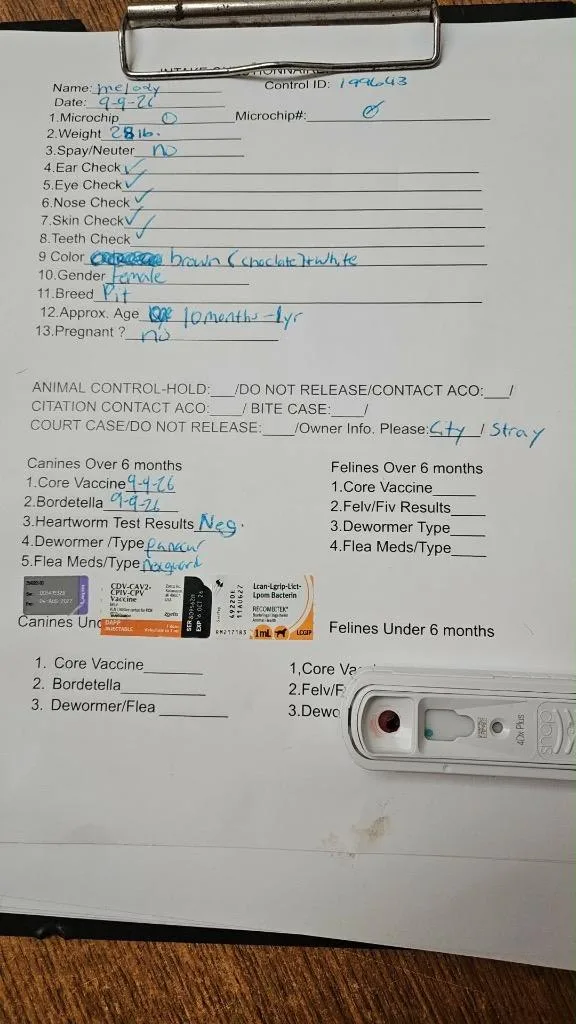 Name: melody Control ID: 199643
Date: 9-9-26
1.Microchip 0 Microchip#: Ø
2.Weight 28 lb.
3.Spay/Neuter no
4.Ear Check ✓
5.Eye Check ✓
6.Nose Check ✓
7.Skin Check ✓
8.Teeth Check ✓
9 Color brown (choclate)+white
10.Gender Female
11.Breed Pit
12.Approx. Age 10months-1yr
13.Pregnant ? no
ANIMAL CONTROL-HOLD:___/DO NOT RELEASE/CONTACT ACO:___/
CITATION CONTACT ACO:____/ BITE CASE:____/
COURT CASE/DO NOT RELEASE:____/Owner Info. Please: City / Stray
Canines Over 6 months
1.Core Vaccine 9-9-26
2.Bordetella 9-9-26
3.Heartworm Test Results Neg.
4.Dewormer /Type panacur
5.Flea Meds/Type Nexguard
Felines Over 6 months
1.Core Vaccine_____
2.Felv/Fiv Results_____
3.Dewormer Type_____
4.Flea Meds/Type_____
04-AUG-2027
CDV-CAV2-
CPIV-CPV
Vaccine
zoetis
DAPP
INJECTABLE
SER
EXP 16 OCT 26
49220E
11AUG27
RM217183
Lcan-Lgrip-Lict-
Lpom Bacterin
RECOMBITEK
1mL LCGIP
Canines Und
1. Core Vaccine_______
2. Bordetella___________
3. Dewormer/Flea _________
Felines Under 6 months
1,Core Va
2.Felv/F
3.Dewo
snap
4Dx Plus